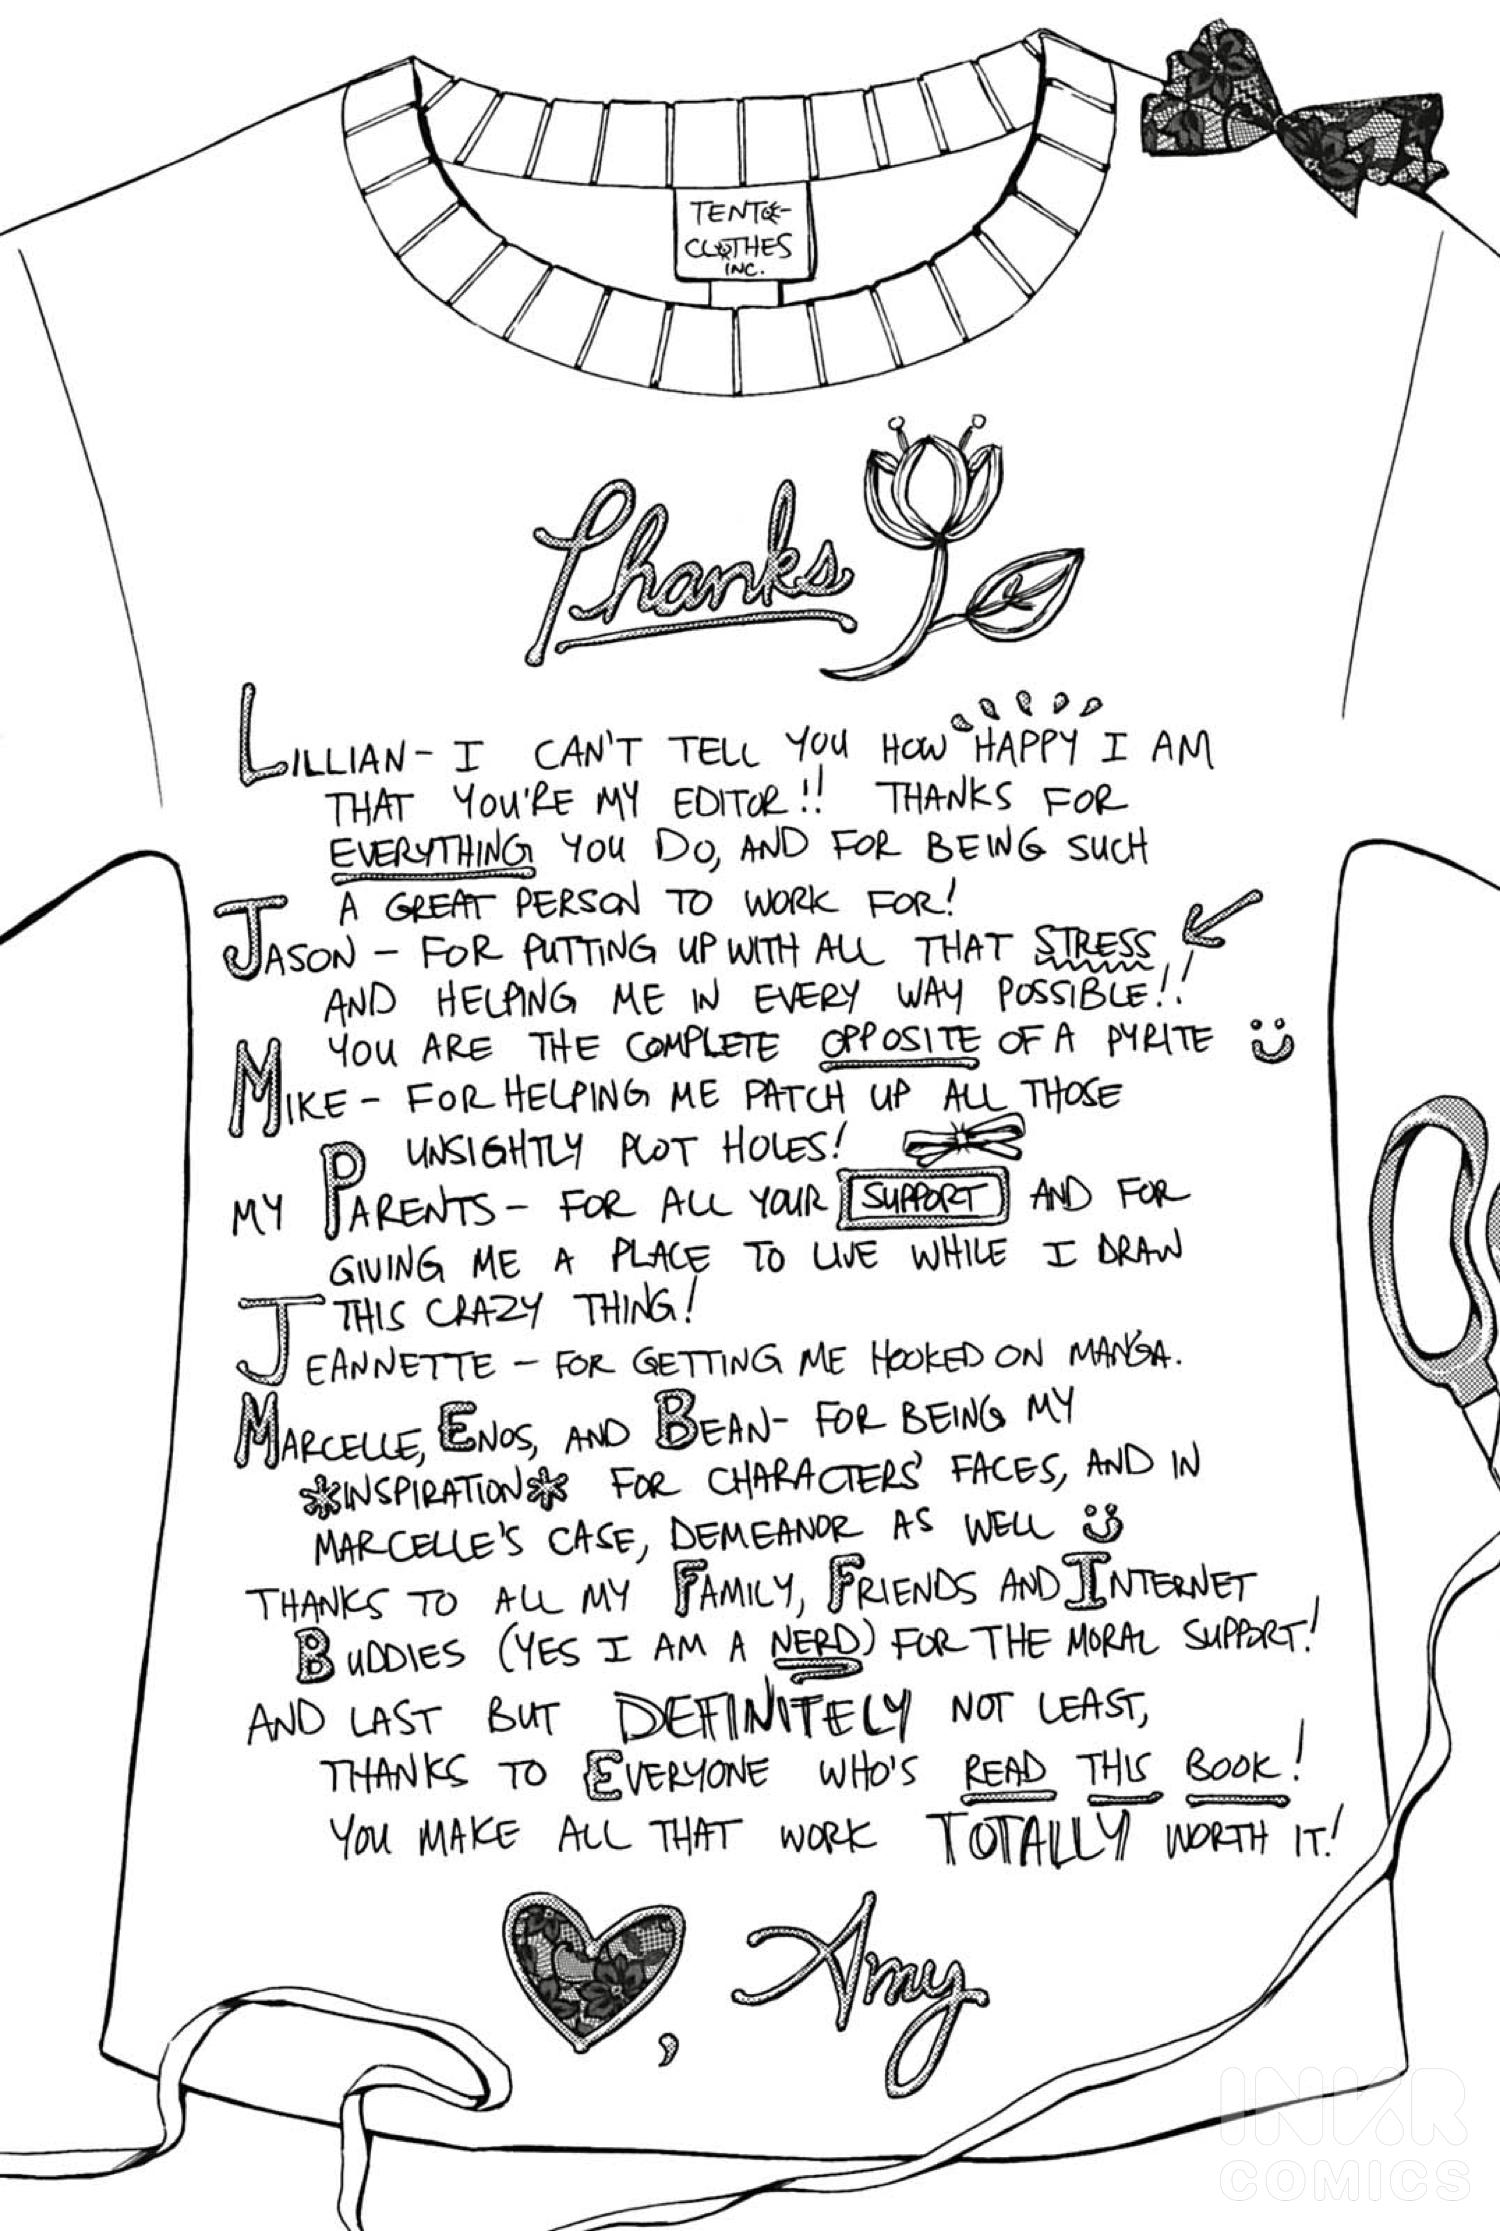 TENTO-
CLOTHES
INC.
Thanks
LILLIAN - I CAN'T TELL YOU HOW HAPPY I AM
THAT YOU'RE MY EDITOR!! THANKS FOR
EVERYTHING YOU DO, AND FOR BEING SUCH
A GREAT PERSON TO WORK FOR!
JASON - FOR PUTTING UP WITH ALL THAT STRESS
AND HELPING ME IN EVERY WAY POSSIBLE!!
YOU ARE THE COMPLETE OPPOSITE OF A PYRITE Ü
MIKE - FOR HELPING ME PATCH UP ALL THOSE
UNSIGHTLY PLOT HOLES!
MY PARENTS - FOR ALL YOUR SUPPORT AND FOR
GIVING ME A PLACE TO LIVE WHILE I DRAW
THIS CRAZY THING!
JEANNETTE - FOR GETTING ME HOOKED ON MANGA.
MARCELLE, ENOS, AND BEAN - FOR BEING MY
*INSPIRATION* FOR CHARACTERS' FACES, AND IN
MARCELLE'S CASE, DEMEANOR AS WELL Ü
THANKS TO ALL MY FAMILY, FRIENDS AND INTERNET
BUDDIES (YES I AM A NERD) FOR THE MORAL SUPPORT!
AND LAST BUT DEFINITELY NOT LEAST,
THANKS TO EVERYONE WHO'S READ THIS BOOK!
YOU MAKE ALL THAT WORK TOTALLY WORTH IT!
♥, Amy
INKR
COMICS